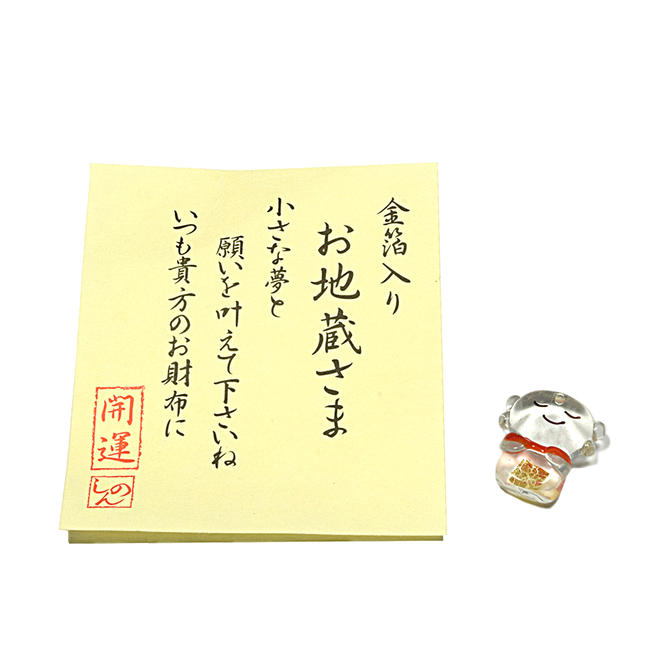 金箔入り
お地蔵さま
小さな夢と
願いを叶えて下さいね
いつも貴方のお財布に
開運
しんのん